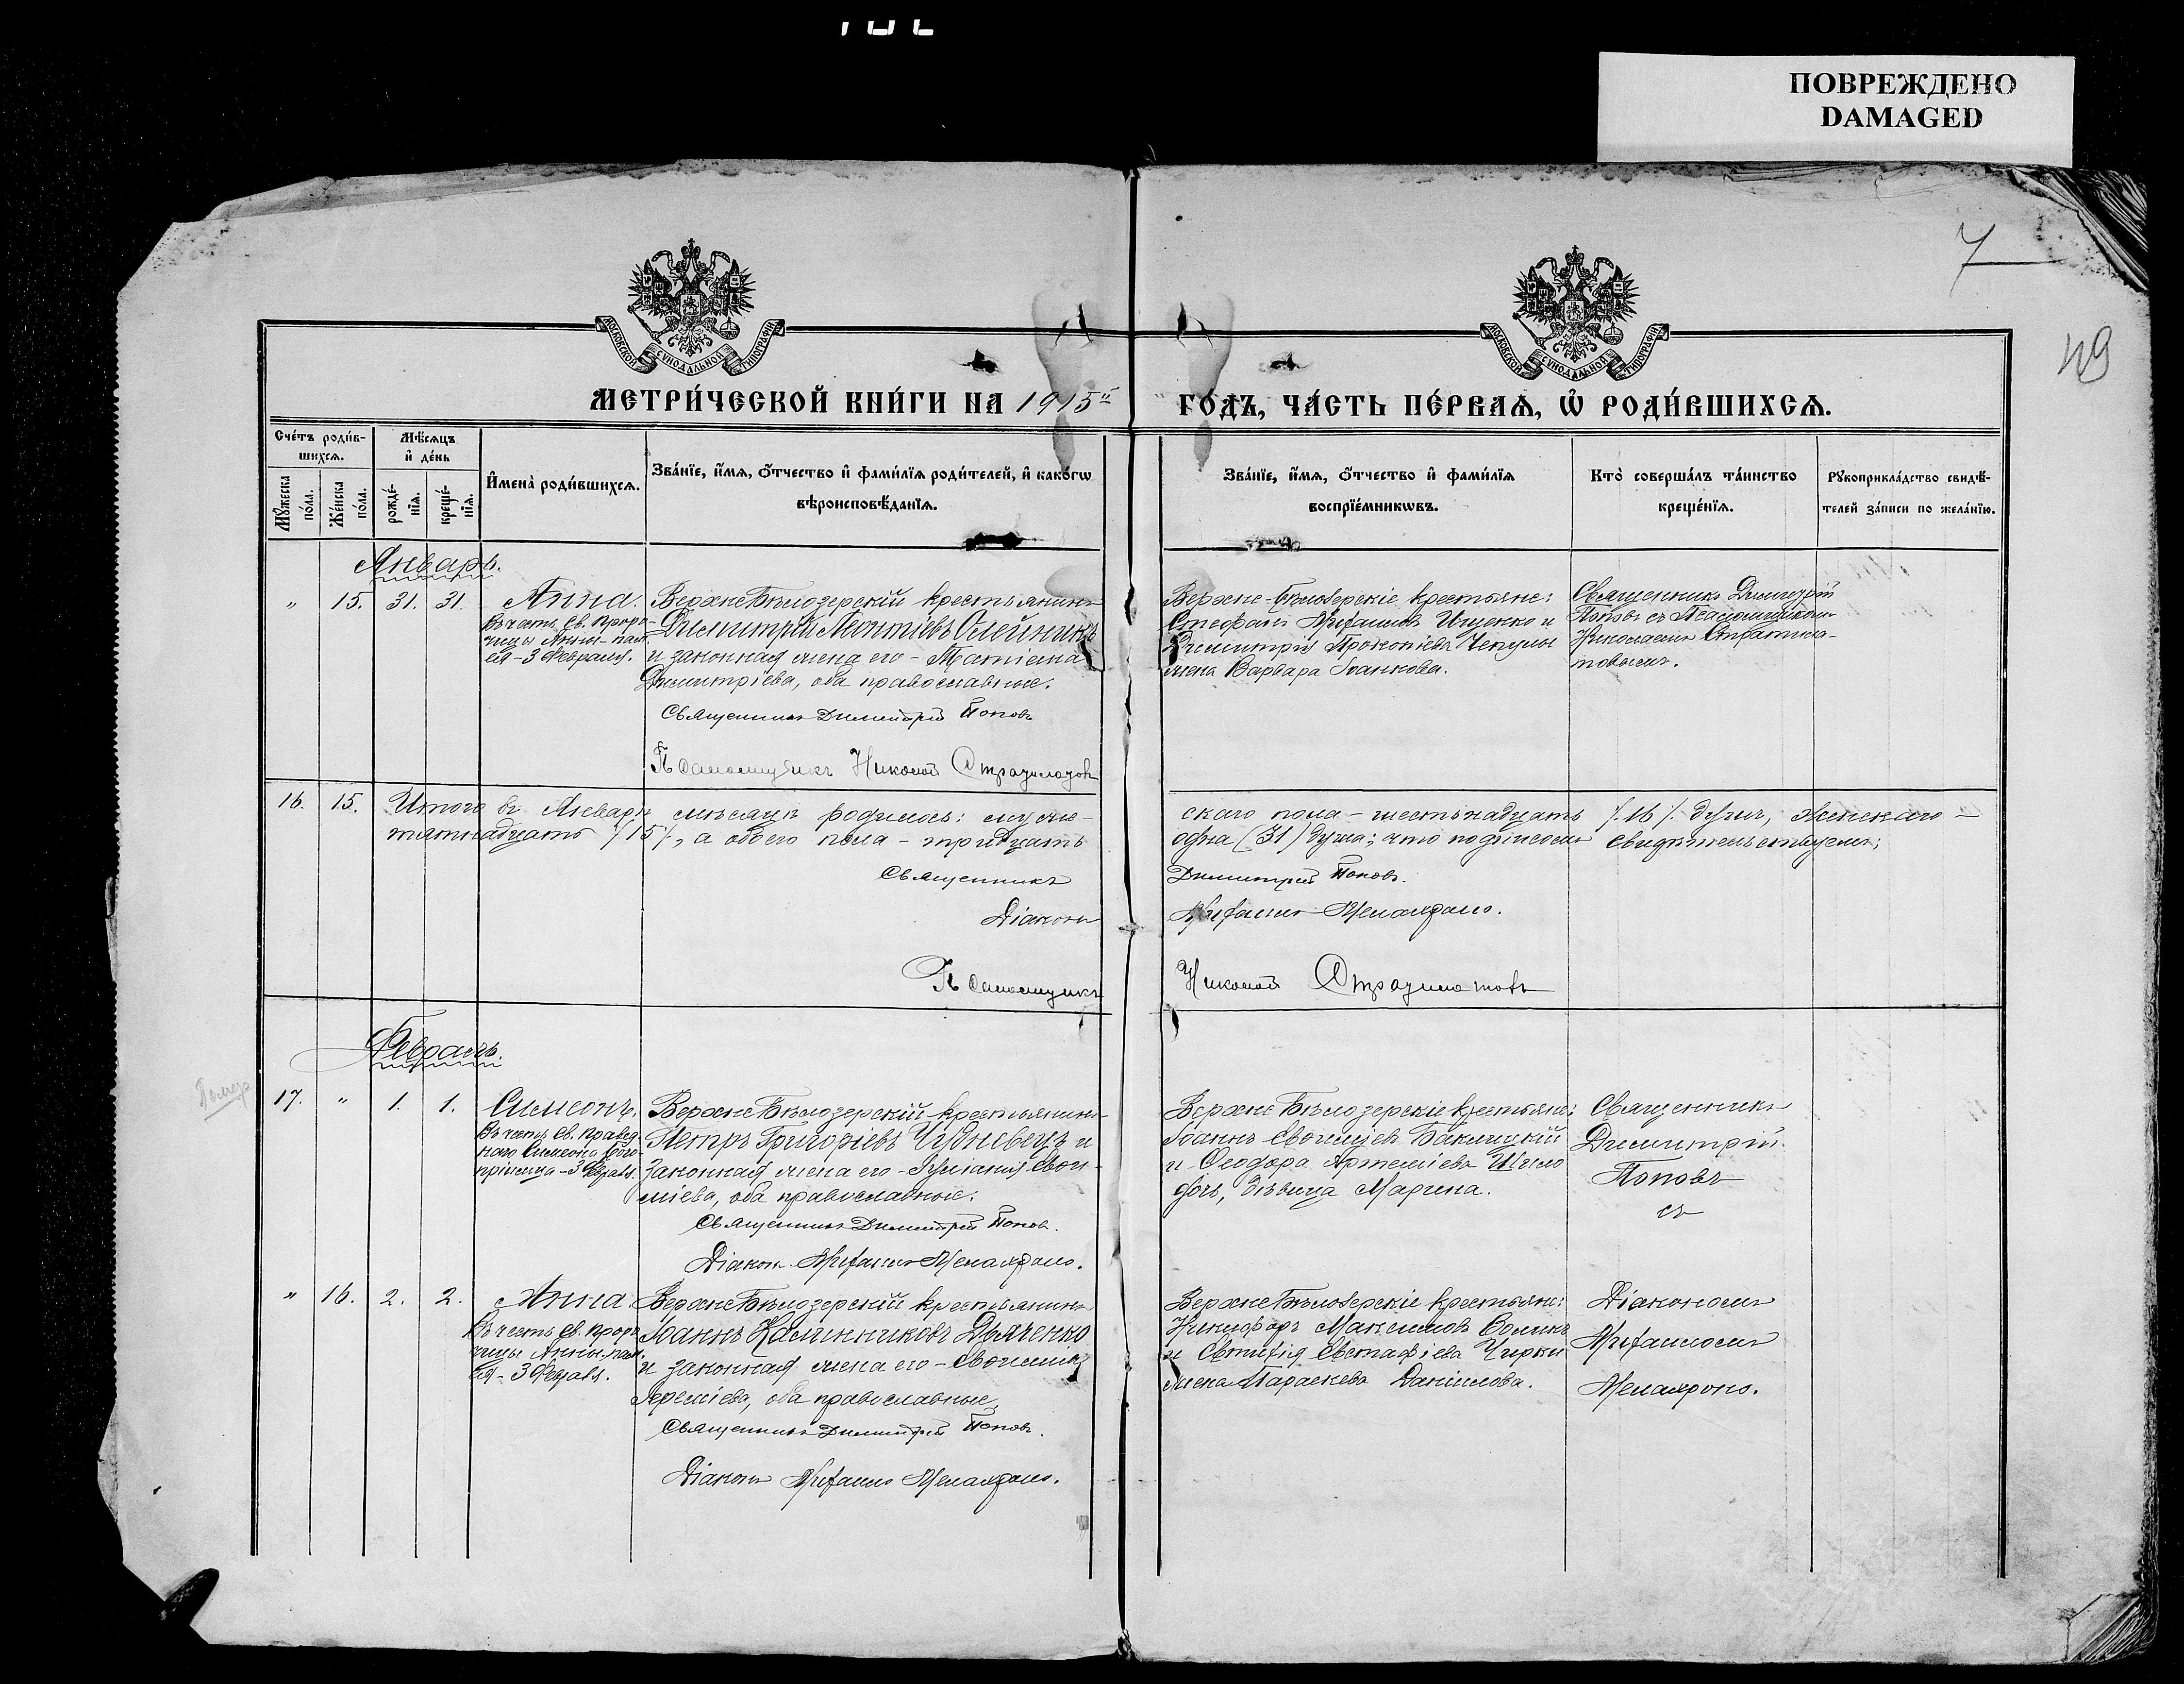 ПОВРЕЖДЕНО
DAMAGED
7
49
МОСКОВСКОЙ СѴНОДАЛЬНОЙ ТИПОГРАФІИ
МОСКОВСКОЙ СѴНОДАЛЬНОЙ ТИПОГРАФІИ
МЕТРИ́ЧЕСКОЙ КНИ́ГИ НА 1915й
ГО́ДЪ, ЧА́СТЬ ПЕ́РВАѦ, Ѡ҆ РОДИ́ВШИХСѦ.
Сче́тъ роди́в-
шихсѧ.
Мꙋ́жеска по́ла.
Же́нска по́ла.
Мѣ́сѧцъ
и҆ де́нь
рожде́-
нїѧ.
креще́-
нїѧ.
И҆мена̀ роди́вшихсѧ.
Зва́нїе, и҆́мѧ, ѻ҆́тчество и҆ фами́лїѧ роди́телей, и҆ како́гѡ
вѣроисповѣ́данїѧ.
Зва́нїе, и҆́мѧ, ѻ҆́тчество и҆ фами́лїѧ
воспрїе́мникѡвъ.
Кто̀ соверша́лъ та́инство
креще́нїѧ.
Рꙋкоприкла́дство свидѣ́-
телей за́писи по жела́нїю.
Январь.
" 15. 31. 31. Анна.
Въ честь св. Проро-
чицы Анны - пам.
ея - 3 Февраля.
ВерхнеБѣлозерскій крестьянинъ
Димитрій Леонтіевъ Олейникъ
и законная жена его - Татіана
Димитріева, оба православные.
Священникъ Димитрій Поповъ
Псаломщикъ Николай Стратилатовъ
Верхне-Бѣлозерскіе крестьяне:
Стефанъ Ищенко и
Димитрія Прокопіева Чепулы
жена Варвара Іоаннова.
Священникъ Димитрій
Поповъ съ Псаломщикомъ
Николаемъ Стратила-
товымъ.
16. 15. Итого въ Январѣ мѣсяцѣ родилось: муже-
скаго пола - шестьнадцать /16/ душъ, женскаго -
пятнадцать /15/, а обоего пола - тридцать
одна (31) душа; что подписомъ свидѣтельствуемъ:
Священникъ Димитрій Поповъ.
Діаконъ
Псаломщикъ Николай Стратилатовъ
Февраль.
17. " 1. 1. Симеонъ.
Въ честь св. Правед-
наго Симеона Бого-
пріимца - 3 Февраля.
ВерхнеБѣлозерскій крестьянинъ
Петръ Григоріевъ Чудневецъ и
законная жена его - Іуліанія Евѳи-
міева, оба православные.
Священникъ Димитрій Поповъ.
Діаконъ
ВерхнеБѣлозерскіе крестьяне:
Іоаннъ Евѳиміевъ Бакшицкій
и Ѳеодора Артеміева
дочь, дѣвица Марина.
Священникъ
Димитрій
Поповъ
съ
" 16. 2. 2. Анна.
Въ честь св. Проро-
чицы Анны - пам.
ея - 3 Февраля.
ВерхнеБѣлозерскій крестьянинъ
Іоаннъ Калинниковъ Дьяченко
и законная жена его - Евѳимія
Іереміева, оба православные.
Священникъ Димитрій Поповъ.
Діаконъ
ВерхнеБѣлозерскіе крестьяне:
Никифоръ Максимовъ
и Евстафіева Чирки
жена Параскева Даніилова.
Діакономъ